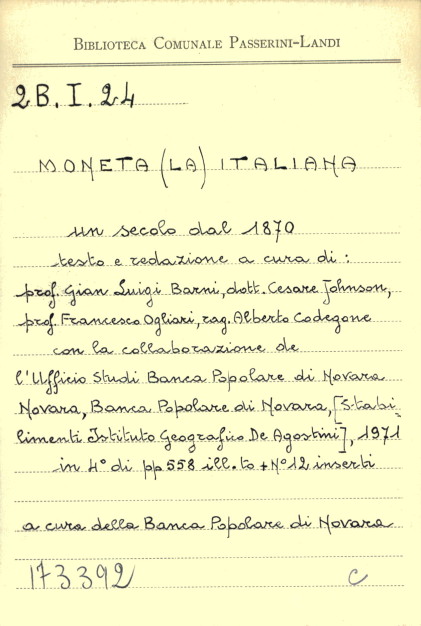 BIBLIOTECA COMUNALE PASSERINI-LANDI
2B.I.24
MONETA (LA) ITALIANA
un secolo dal 1870
testo e redazione a cura di:
prof. Gian Luigi Barni, dott. Cesare Johnson,
prof. Francesco Ogliari, rag. Alberto Codegone
con la collaborazione de
l'Ufficio Studi Banca Popolare di Novara
Novara, Banca Popolare di Novara, [Stabi-
limenti Istituto Geografico De Agostini], 1971
in 4° di pp 558 ill.to + N° 12 inserti
a cura della Banca Popolare di Novara
173392 C